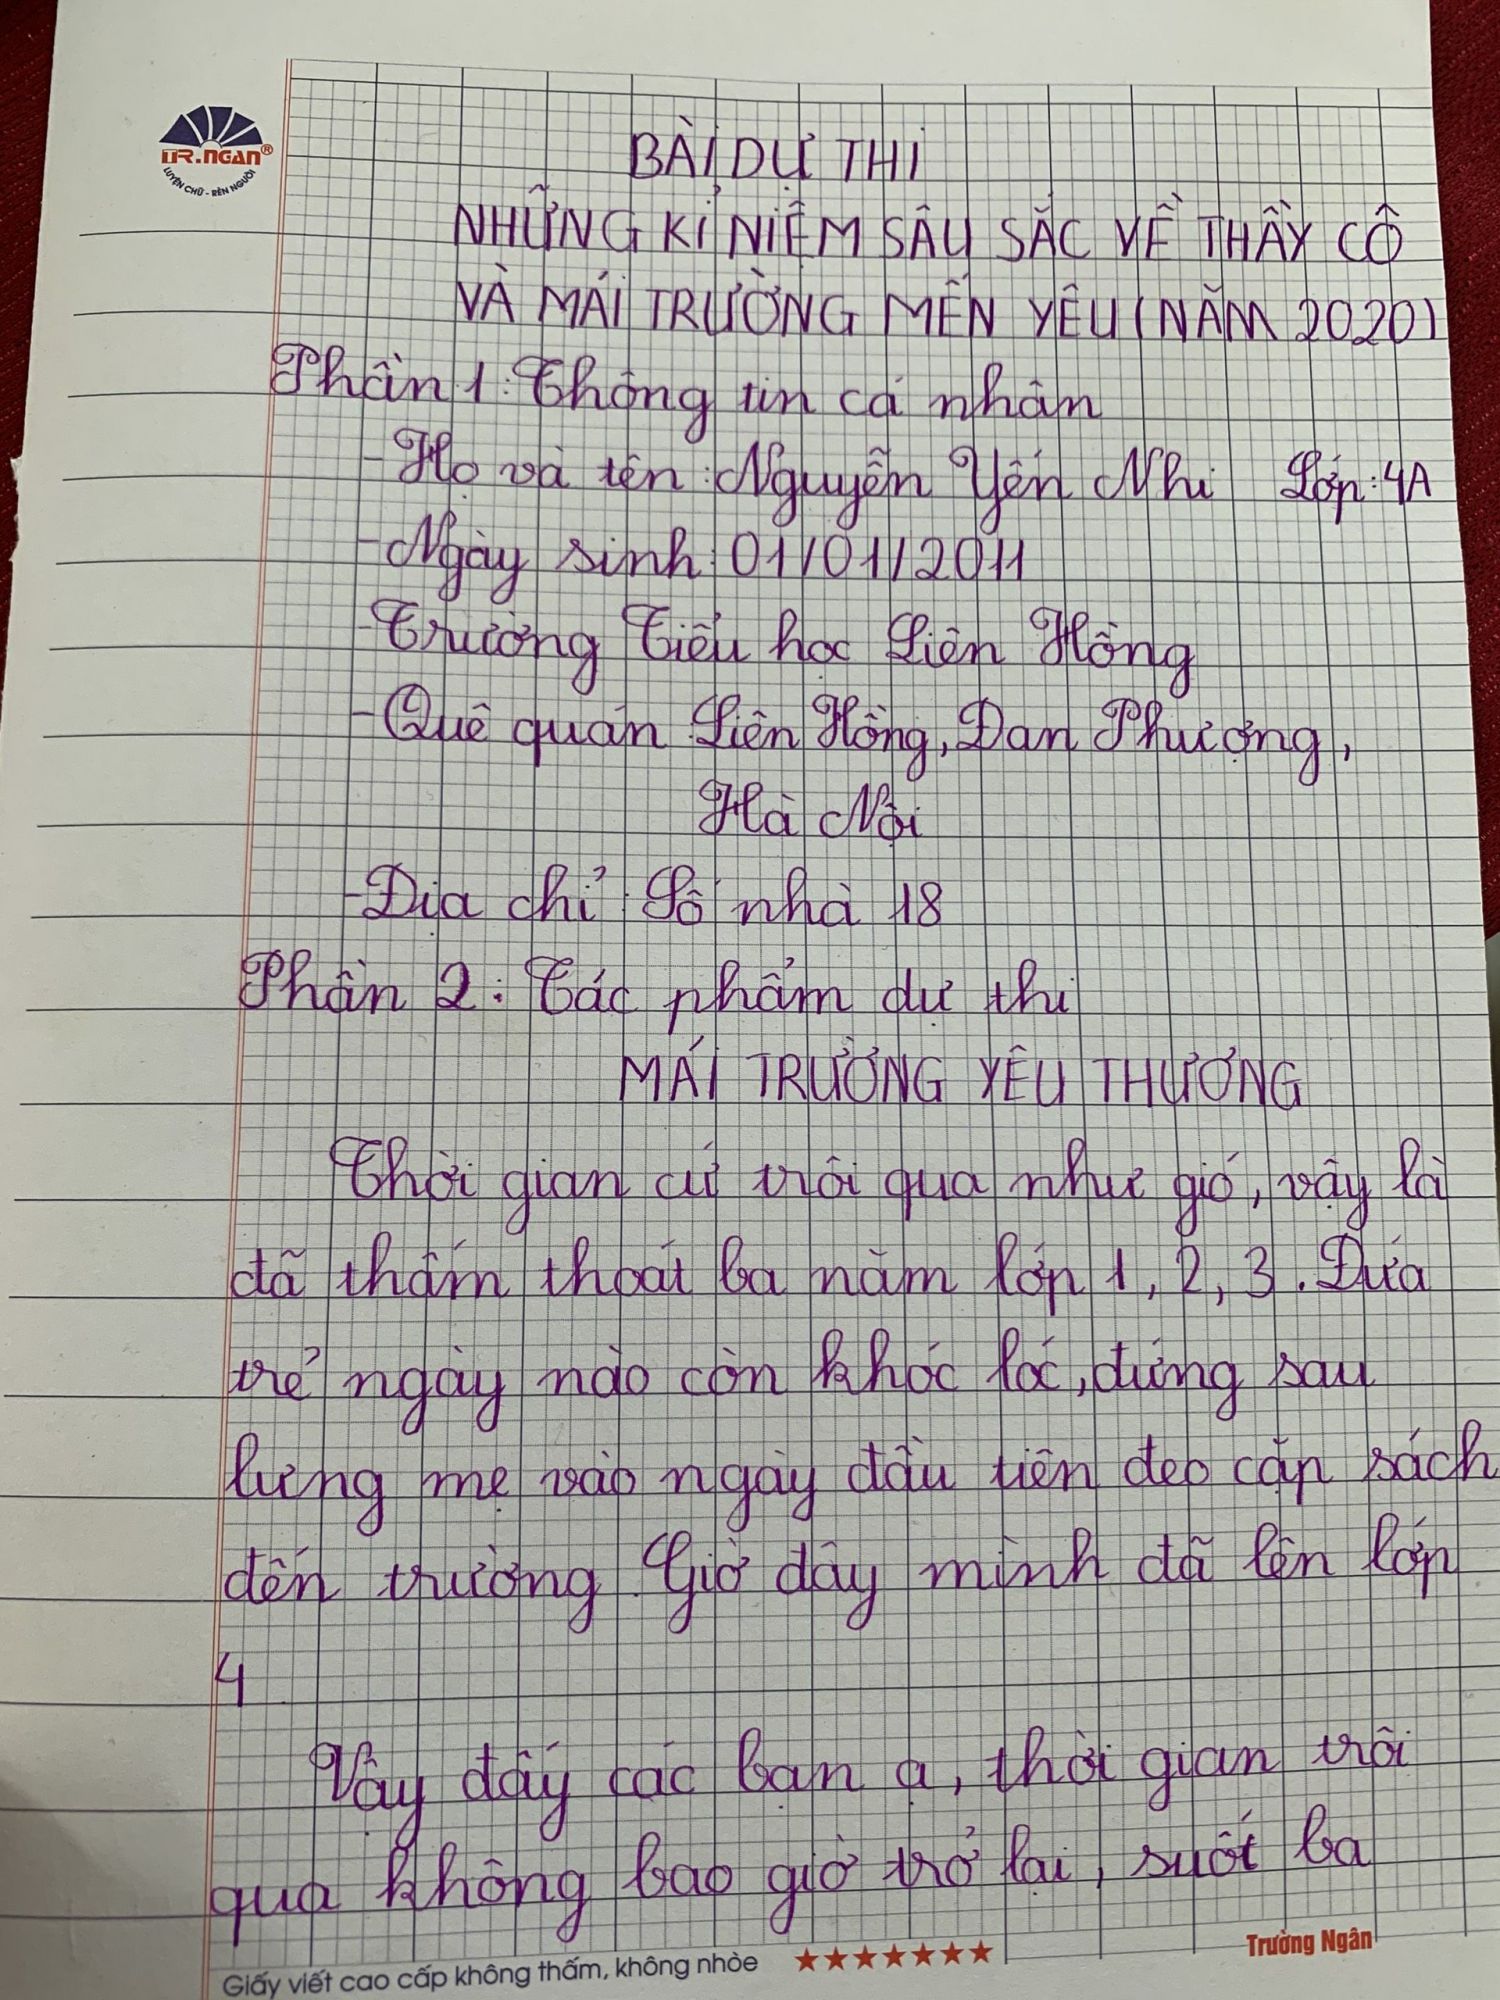 TR.NGAN®
LUYỆN CHỮ - RÈN NGƯỜI
BÀI DỰ THI
NHỮNG KỈ NIỆM SÂU SẮC VỀ THẦY CÔ
VÀ MÁI TRƯỜNG MẾN YÊU (NĂM 2020)
Phần 1: Thông tin cá nhân
- Họ và tên: Nguyễn Yến Nhi Lớp: 4A
- Ngày sinh: 01/01/2011
- Trường Tiểu học Liên Hồng
- Quê quán: Liên Hồng, Đan Phượng,
Hà Nội
- Địa chỉ: Số nhà 18
Phần 2: Tác phẩm dự thi
MÁI TRƯỜNG YÊU THƯƠNG
Thời gian cứ trôi qua như gió, vậy là
đã thấm thoát ba năm lớp 1, 2, 3. Đứa
trẻ ngày nào còn khóc lóc, đứng sau
lưng mẹ vào ngày đầu tiên đeo cặp sách
đến trường. Giờ đây mình đã lên lớp
4
Vậy đấy các bạn ạ, thời gian trôi
qua không bao giờ trở lại, suốt ba
Giấy viết cao cấp không thấm, không nhòe ★★★★★★★ Trường Ngân